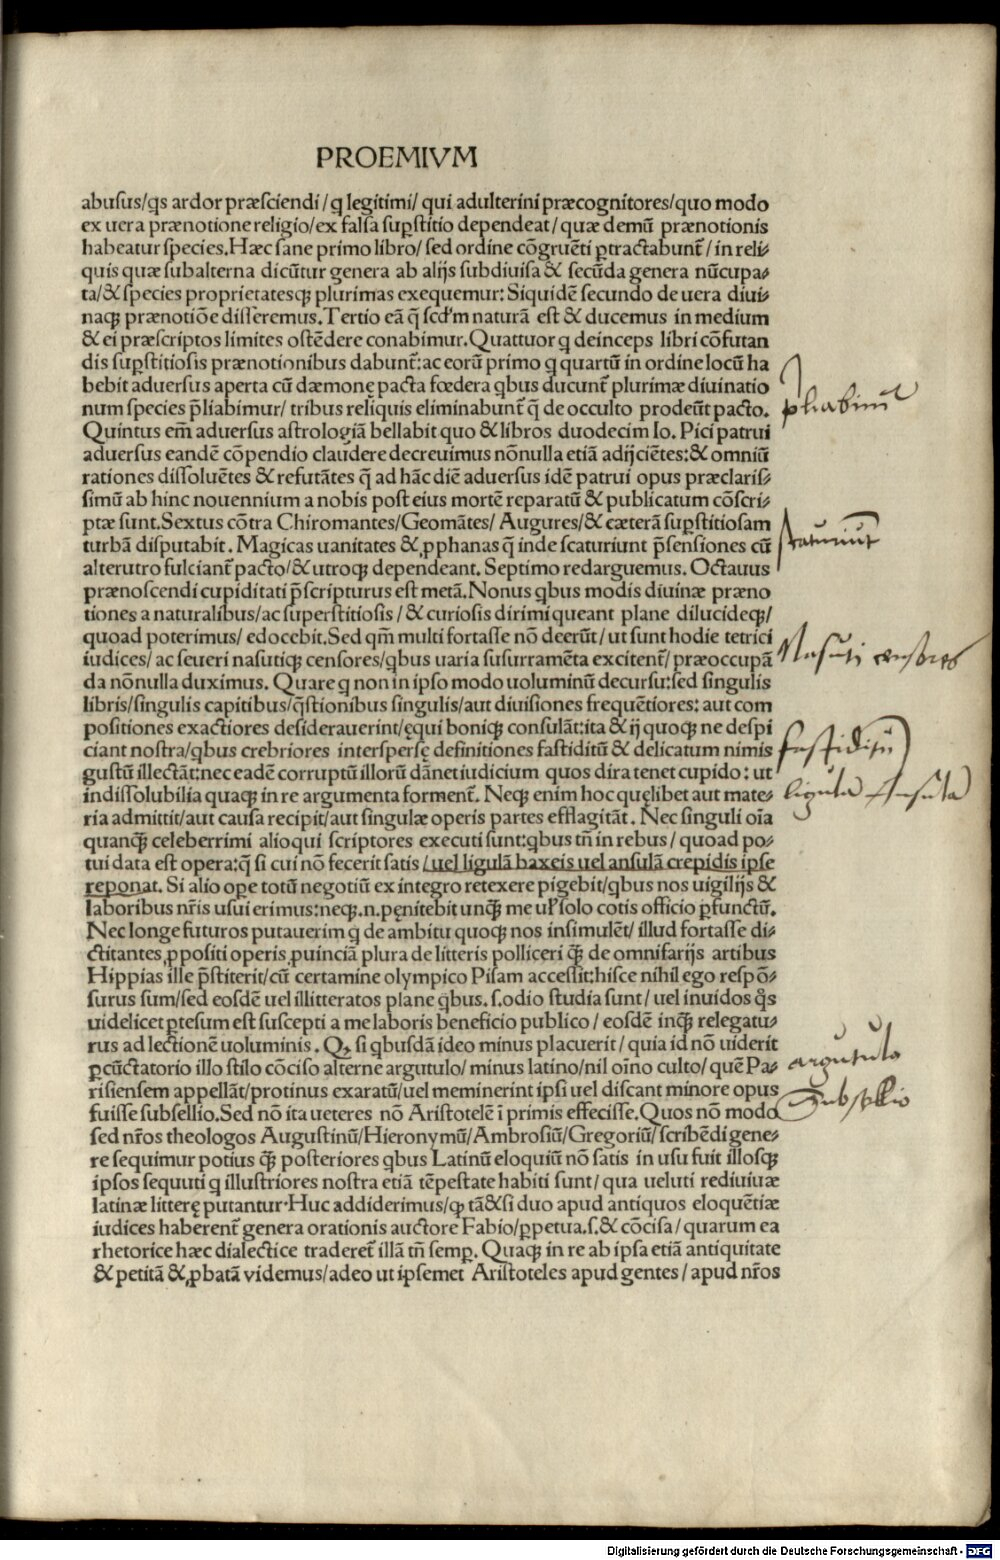 PROEMIVM
abusus/q̃s ardor præsciendi/q̃ legitimi/ qui adulterini præcognitores/quo modo
ex uera prænotione religio/ex falsa suꝑstitio dependeat/ quæ demū prænotionis
habeatur species.Hæc sane primo libro/ sed ordine cōgruēti ꝑtractabunt̃/ in reli-
quis quæ subalterna dicūtur genera ab alijs subdiuisa & secūda genera nūcupa-
ta/& species proprietatesqꝫ plurimas exequemur: Siquidē secundo de uera diui-
naqꝫ prænotiōe disseremus.Tertio eā q̄ scd'm naturā est & ducemus in medium
& ei præscriptos limites ostēdere conabimur. Quattuor q̃ deinceps libri cōfutan
dis suꝑstitiosis prænotionibus dabunt̃: ac eorū primo q̃ quartū in ordine locū ha
bebit aduersus aperta cū dæmonę pacta fœdera q̃bus ducunt̃ plurimæ diuinatio
num species p̄liabimur/ tribus reliquis eliminabunt̃ q̄ de occulto prodeūt pacto.
phabimur
Quintus em̄ aduersus astrologiā bellabit quo & libros duodecim Io. Pici patrui
aduersus eandē cōpendio claudere decreuimus nōnulla etiā adijciētes:& omniū
rationes dissoluētes & refutātes q̄ ad hāc diē aduersus idē patrui opus præclaris-
simū ab hinc nouennium a nobis post eius mortē reparatū & publicatum cōscri-
ptæ sunt.Sextus cōtra Chiromantes/Geomātes/ Augures/& cæterā suꝑstitiosam
turbā disputabit. Magicas uanitates & ꝓphanas q̄ inde scaturiunt p̄sensiones cū
scaturiūt
alterutro fulciant̃ pacto/& utroqꝫ dependeant. Septimo redarguemus. Octauus
prænoscendi cupiditati p̄scripturus est metā. Nonus q̃bus modis diuinæ præno
tiones a naturalibus/ac superstitiosis/& curiosis dirimi queant plane dilucideqꝫ/
quoad poterimus/ edocebit.Sed qm̄ multi fortasse nō deerūt/ ut sunt hodie tetrici
iudices/ ac seueri nasutiqꝫ censores/q̃bus uaria susurramēta excitent̃/ præoccupā
Nasuti censores
da nōnulla duximus. Quare q̃ non in ipso modo uoluminū decursu:sed singulis
libris/singulis capitibus/q̄stionibus singulis/aut diuisiones frequētiores: aut com
positiones exactiores desiderauerint/ęqui boniqꝫ consulāt:ita & ij quoqꝫ ne despi
ciant nostra/q̃bus crebriores interspersę definitiones fastiditū & delicatum nimis
fastiditū
gustū illectāt:nec eadē corruptū illorū dānet iudicium quos dira tenet cupido: ut
indissolubilia quaqꝫ in re argumenta forment̃. Neqꝫ enim hoc quęlibet aut mate-
ligula Ansula
ria admittit/aut causa recipit/aut singulæ operis partes efflagitāt. Nec singuli oīa
quanqꝫ celeberrimi alioqui scriptores executi sunt:q̃bus tñ in rebus/ quoad po-
tui data est opera:q̄ si cui nō fecerit satis/uel ligulā baxeis uel ansulā crepidis ipse
reponat. Si alio ope totū negotiū ex integro retexere pigebit/q̃bus nos uigilijs &
laboribus nr̃is usui erimus:neqꝫ.n.pęnitebit unqꝫ me ul' solo cotis officio ꝑfunctū.
Nec longe futuros putauerim q̃ de ambitu quoqꝫ nos insimulēt/ illud fortasse di-
ctitantes ꝓpositi operis ꝓuinciā plura de litteris polliceri qꝫ̄ de omnifarijs artibus
Hippias ille p̄stiterit/cū certamine olympico Pisam accessit:hisce nihil ego respō-
surus sum/sed eosdē uel illitteratos plane q̃bus.s.odio studia sunt/ uel inuidos q̊s
uidelicet ꝑtesum est suscepti a me laboris beneficio publico/ eosdē inqꝫ relegatu-
rus ad lectionē uoluminis. Qꝫ si q̃busdā ideo minus placuerit/ quia id nō uiderit
ꝑcūctatorio illo stilo cōciso alterne argutulo/ minus latino/nil oīno culto/ quē Pa-
argutulo
risiensem appellāt/protinus exaratū/uel meminerint ipsi uel discant minore opus
fuisse subsellio.Sed nō ita ueteres nō Aristotelē ī primis effecisse.Quos nō modo
Subsellio
sed nr̃os theologos Augustinū/Hieronymū/Ambrosiū/Gregoriū/scribēdi gene-
re sequimur potius qꝫ̄ posteriores q̃bus Latinū eloquiū nō satis in usu fuit illosqꝫ
ipsos sequuti q̃ illustriores nostra etiā tēpestate habiti sunt/ qua ueluti rediuiuæ
latinæ litterę putantur.Huc addiderimus/ꝙ tā&si duo apud antiquos eloquētiæ
iudices haberent̃ genera orationis auctore Fabio/ꝑpetua.s.& cōcisa/ quarum ea
rhetorice hæc dialectice traderet̃ illā tñ semꝑ. Quaqꝫ in re ab ipsa etiā antiquitate
& petitā & ꝓbatā videmus/adeo ut ipsemet Aristoteles apud gentes/ apud nr̃os
Digitalisierung gefördert durch die Deutsche Forschungsgemeinschaft - DFG